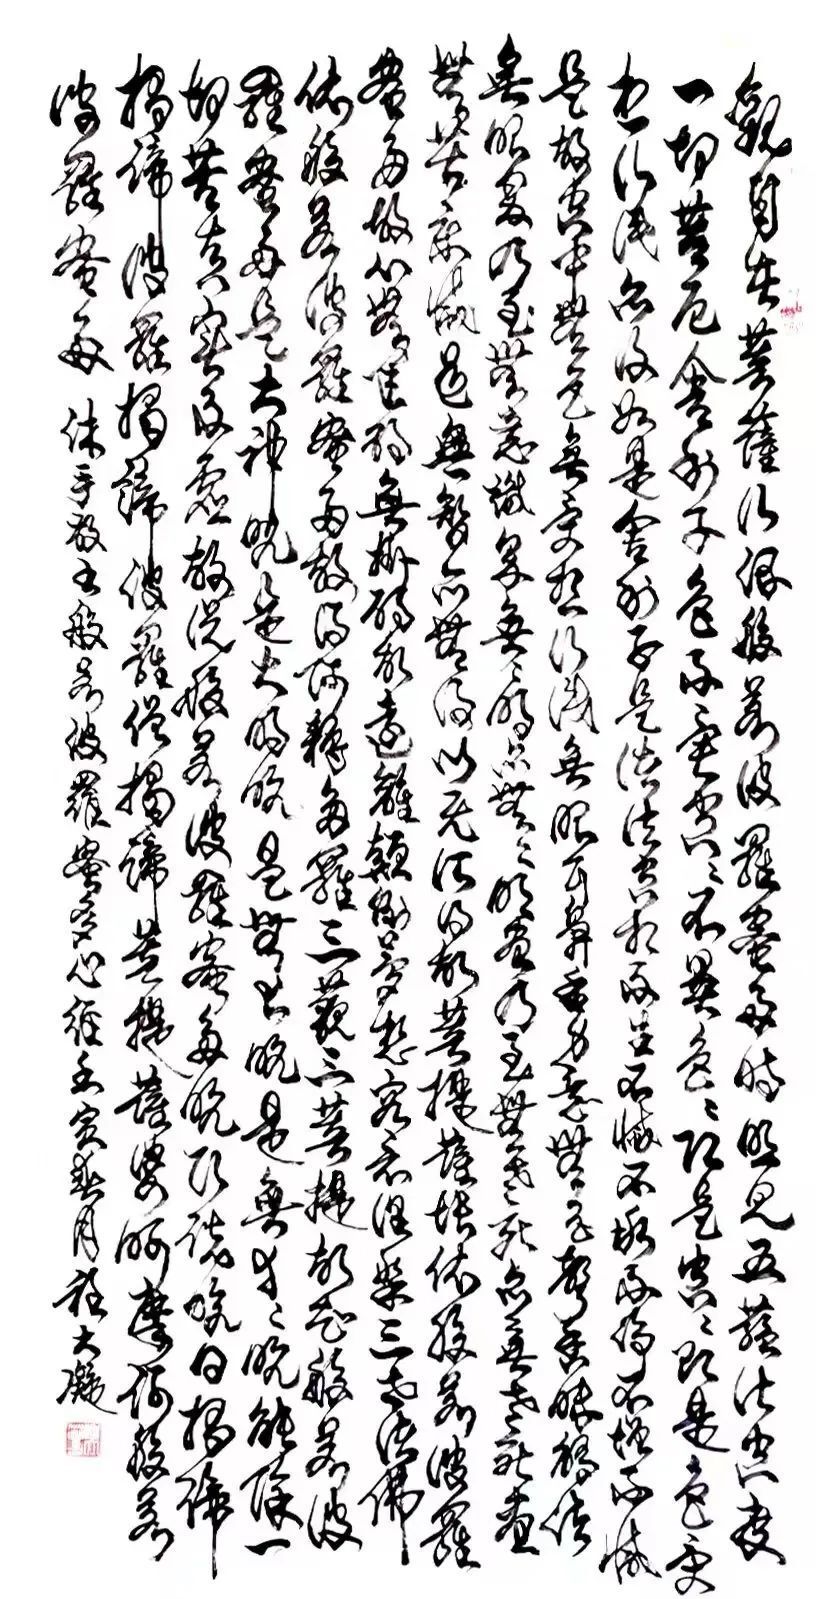 觀自在菩薩行深般若波羅蜜多時照見五蘊皆空度
一切苦厄舍利子色不異空〻不異色〻即是空〻即是色受
想行識亦復如是舍利子是諸法空相不生不滅不垢不淨不增不減
是故空中無色無受想行識無眼耳鼻舌身意無色聲香味觸法
無眼界乃至無意識界無〻明亦無〻明盡乃至無老死亦無老死盡
無苦集滅道無智亦無得以无所得故菩提薩埵依般若波羅
蜜多故心無罣碍無掛碍故遠離顛倒夢想究竟涅槃三世諸佛
依般若波羅蜜多故得阿耨多羅三藐三菩提故知般若波
羅蜜多是大神咒是大明咒是無上咒是無等〻咒能除一
切苦真實不虛故説般若波羅蜜多咒即説咒曰揭諦
揭諦波羅揭諦波羅僧揭諦菩提薩婆訶摩訶般若
波羅蜜多 沐手敬書般若波羅蜜多心經壬寅春月 大凝